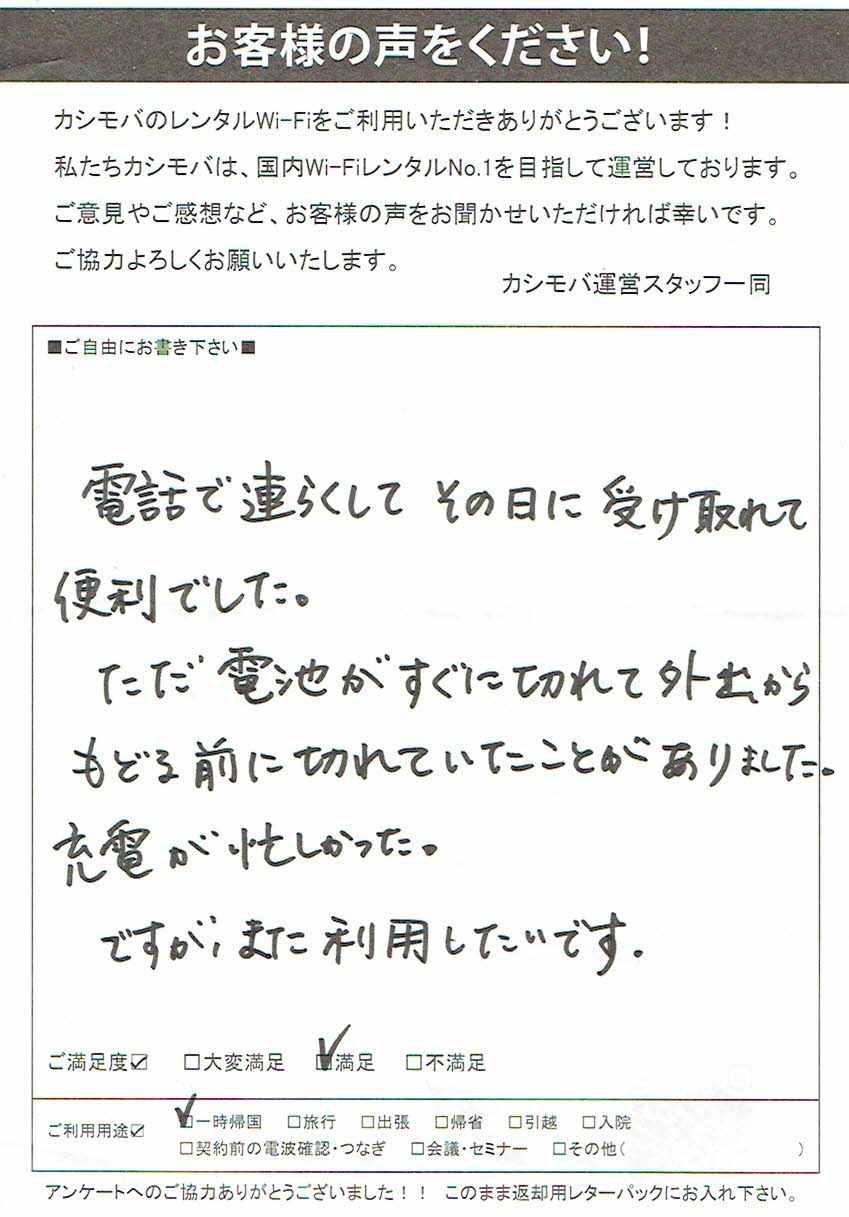 お客様の声をください!
カシモバのレンタルWi-Fiをご利用いただきありがとうございます!
私たちカシモバは、国内Wi-FiレンタルNo.1を目指して運営しております。
ご意見やご感想など、お客様の声をお聞かせいただければ幸いです。
ご協力よろしくお願いいたします。
カシモバ運営スタッフ一同
■ご自由にお書き下さい■
電話で連らくして その日に 受け取れて
便利でした。
ただ 電池がすぐに切れて外出から
もどる前に切れていたことがありました。
充電が忙しかった。
ですが、また利用したいです。
ご満足度☑ □大変満足 ☑満足 □不満足
ご利用用途☑ ☑一時帰国 □旅行 □出張 □帰省 □引越 □入院
□契約前の電波確認・つなぎ □会議・セミナー □その他( )
アンケートへのご協力ありがとうございました!! このまま返却用レターパックにお入れ下さい。